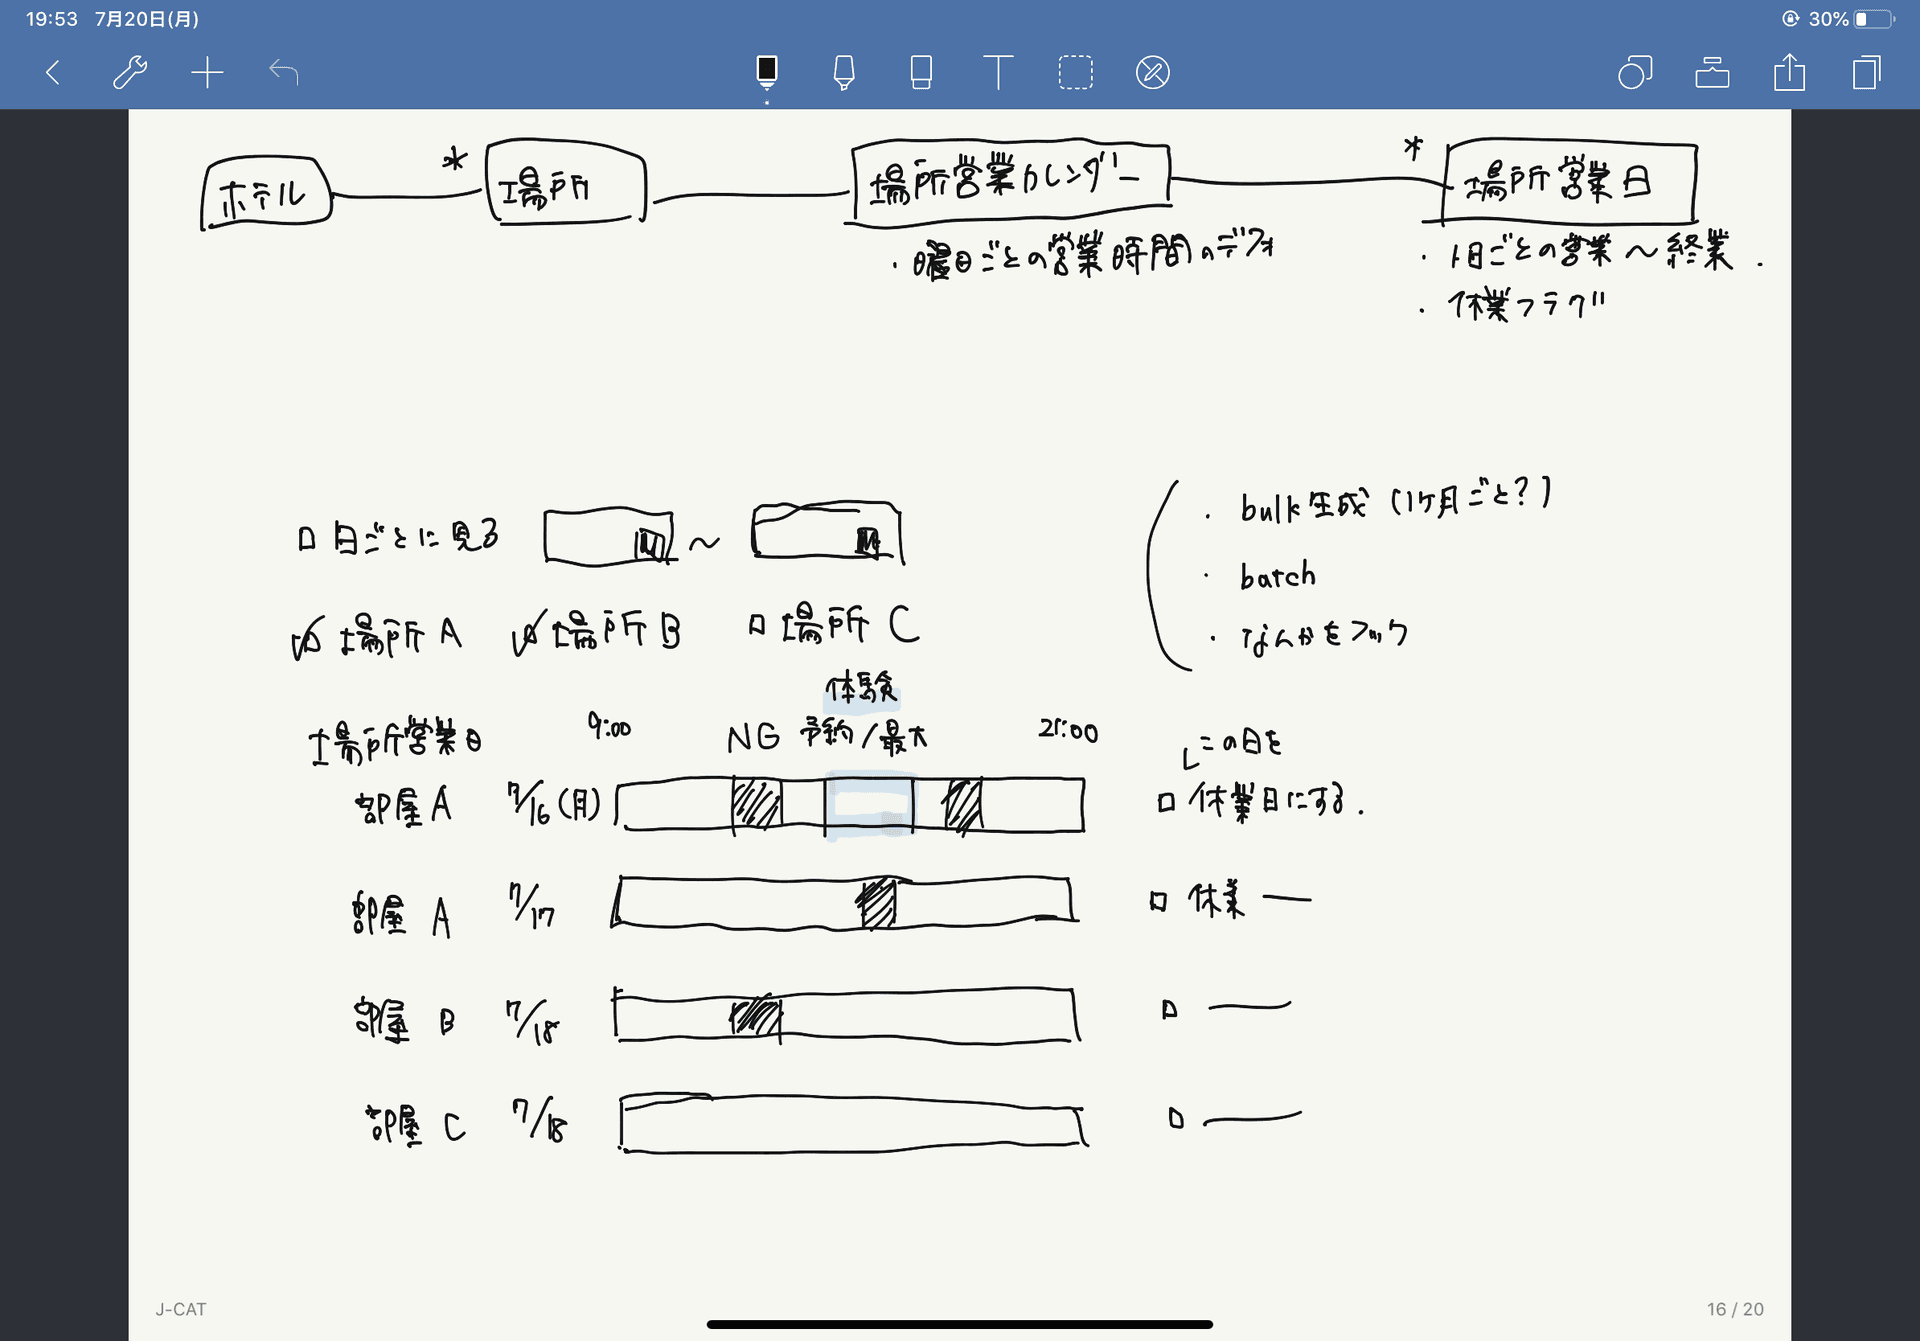 19:53 7月20日(月) 30%
ホテル * 場所 場所営業カレンダー * 場所営業日
・曜日ごとの営業時間のデフォ
・1日ごとの営業〜終業.
・休業フラグ
□ 日ごとに見る 〜
・bulk生成 (1ヶ月ごと?)
・batch
・なんかをフック
☑ 場所 A ☑ 場所 B □ 場所 C
体験
場所営業日 9:00 NG 予約/最大 21:00
この日を
部屋 A 7/16(月) □ 休業日にする.
部屋 A 7/17 □ 休業 —
部屋 B 7/18 □ —
部屋 C 7/18 □ —
J-CAT 16 / 20